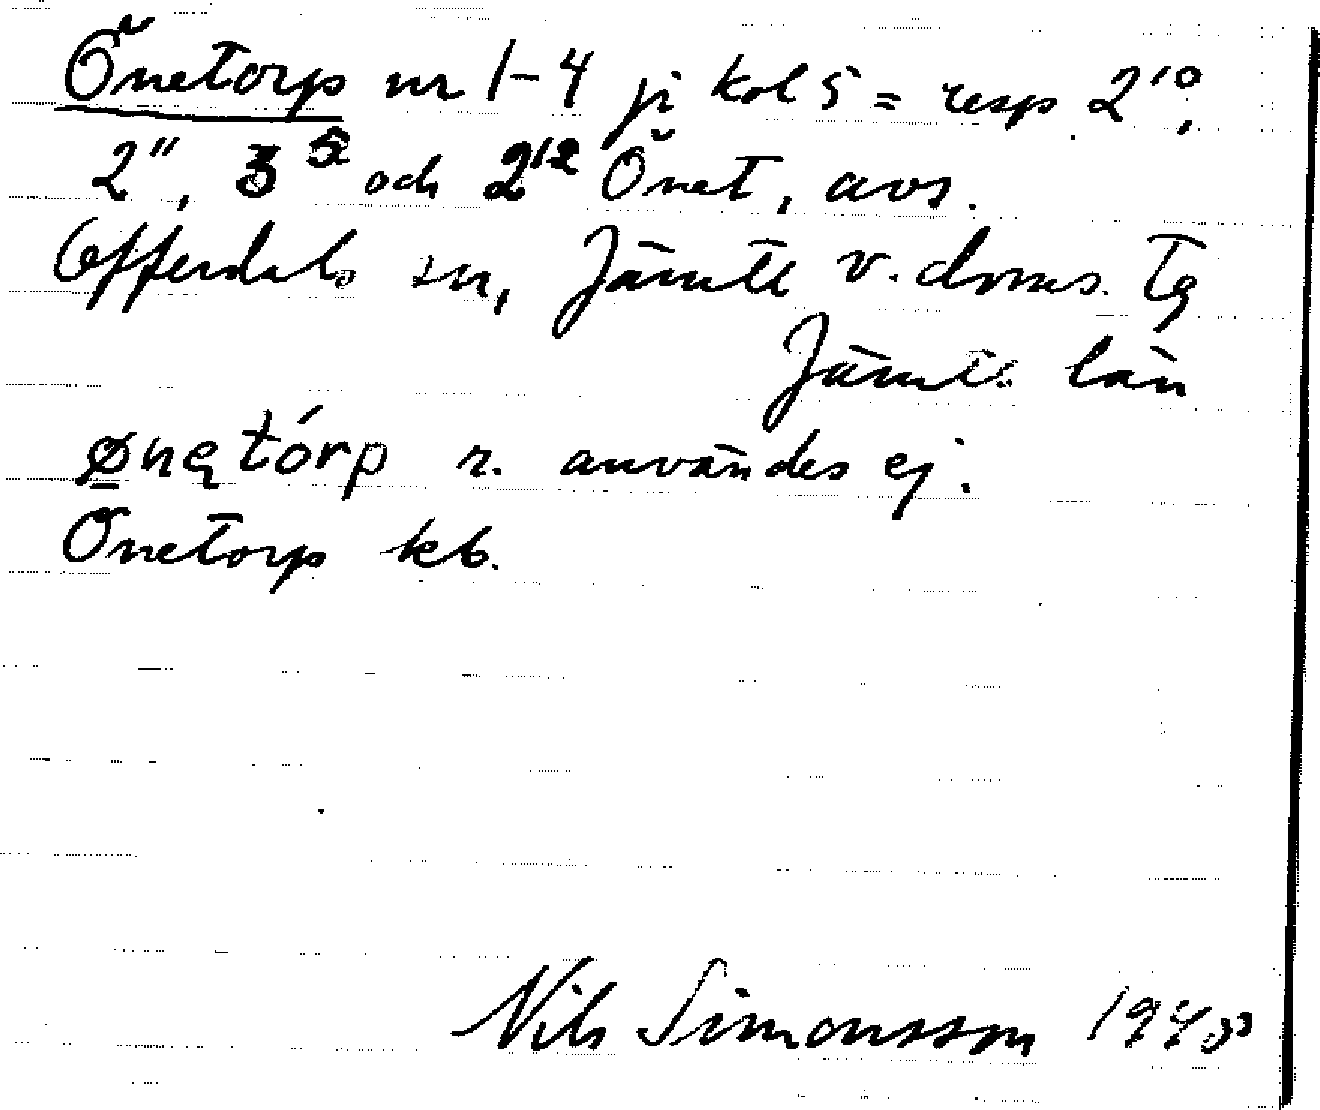 Önetorp nr 1-4 ji kol 5 = resp 2¹⁰,
2¹¹, 3⁵ och 2¹² Önet, avs.
Offerdals sn, Jämtl v. doms. Tg
Jämtl. län
ønętórp r. användes ej.
Önetorp kb.
Nils Simonsson